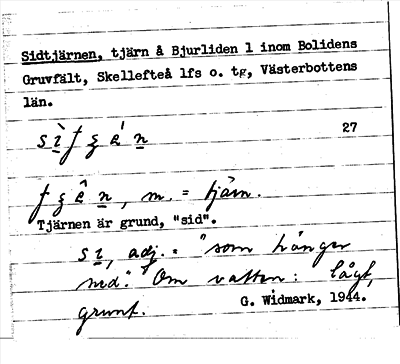 Sidtjärnen, tjärn å Bjurliden 1 inom Bolidens
Gruvfält, Skellefteå lfs o. tg, Västerbottens
län.
27
, m. = tjärn.
Tjärnen är grund, "sid".
adj. = "som hänger
ned." Om vatten: lågt,
grunt.
G. Widmark, 1944.